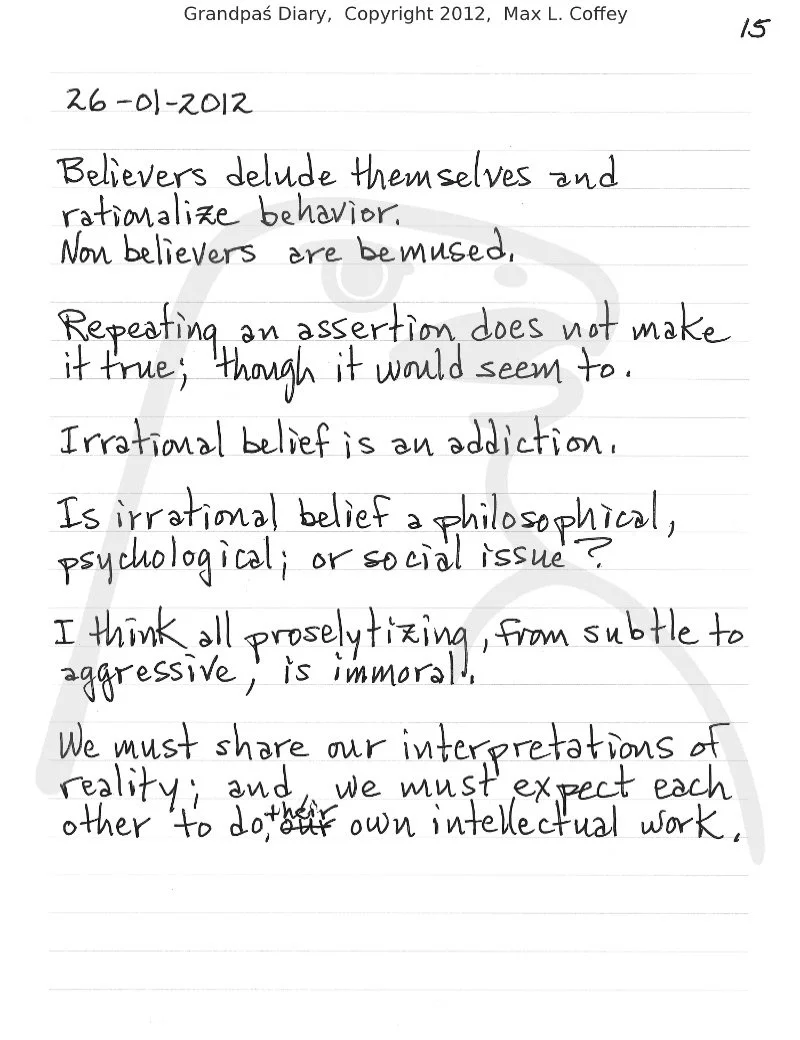 Grandpaś Diary, Copyright 2012, Max L. Coffey
15
26-01-2012
Believers delude themselves and
rationalize behavior.
Non believers are bemused.
Repeating an assertion does not make
it true; though it would seem to.
Irrational belief is an addiction.
Is irrational belief a philosophical,
psychological; or social issue?
I think all proselytizing, from subtle to
aggressive, is immoral.
We must share our interpretations of
reality; and, we must expect each
other to do, their our own intellectual work.